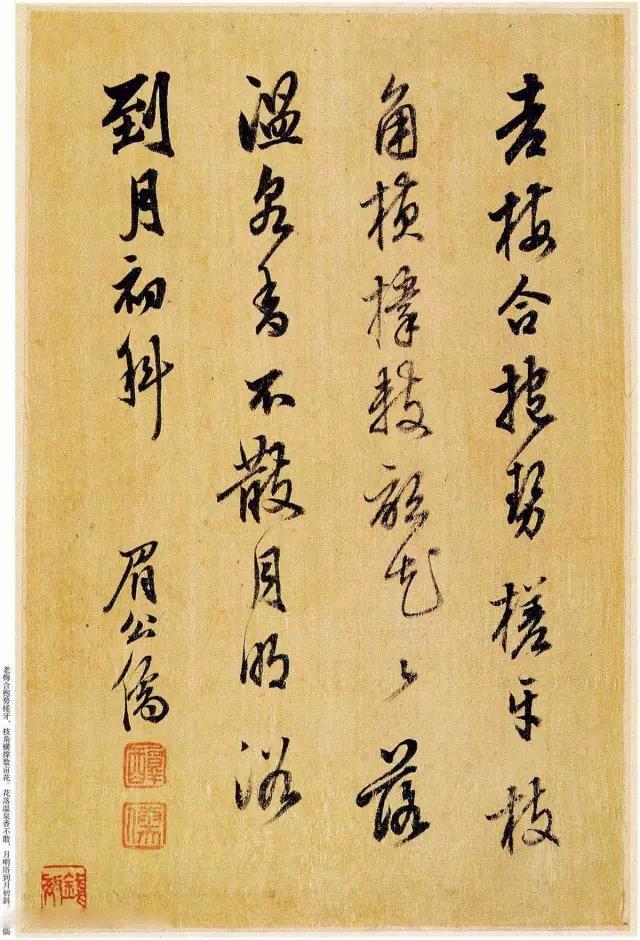 老梅合抱勢槎牙枝
角橫撐數畝花〻落
溫泉香不散月明浴
到月初斜
眉公儒
老梅合抱势槎牙，枝角横撑数亩花。花落温泉香不散，月明浴到月初斜。